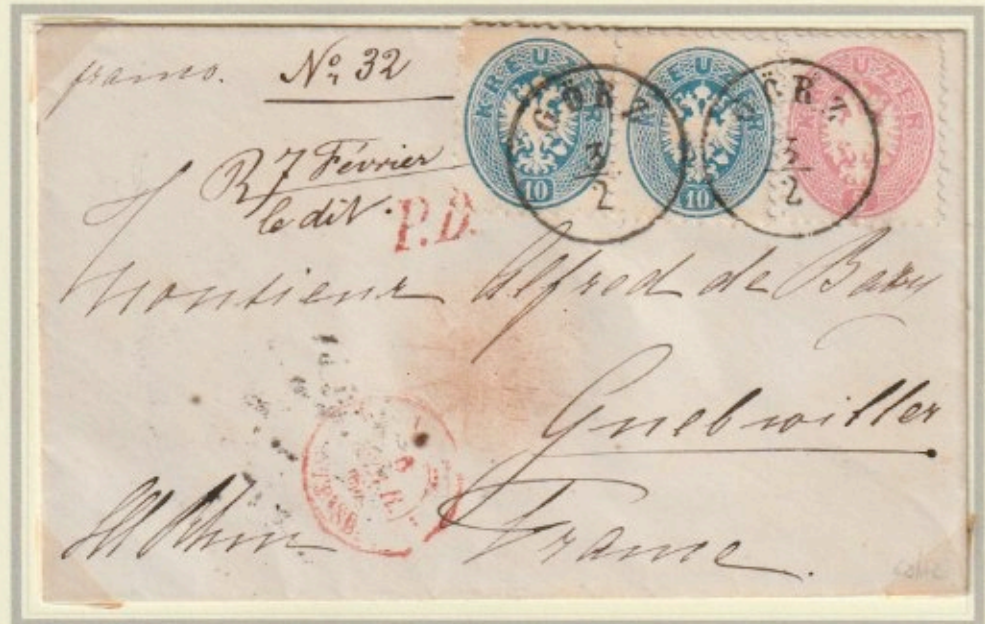 franco. No. 32
KREUZER
10
KREUZER
10
KREUZER
GÖRZ
3/2
GÖRZ
3/2
R 7 Février
le dit.
P.D.
Monsieur Alfred de Bary
Guebwiller
Ht Rhin. France.